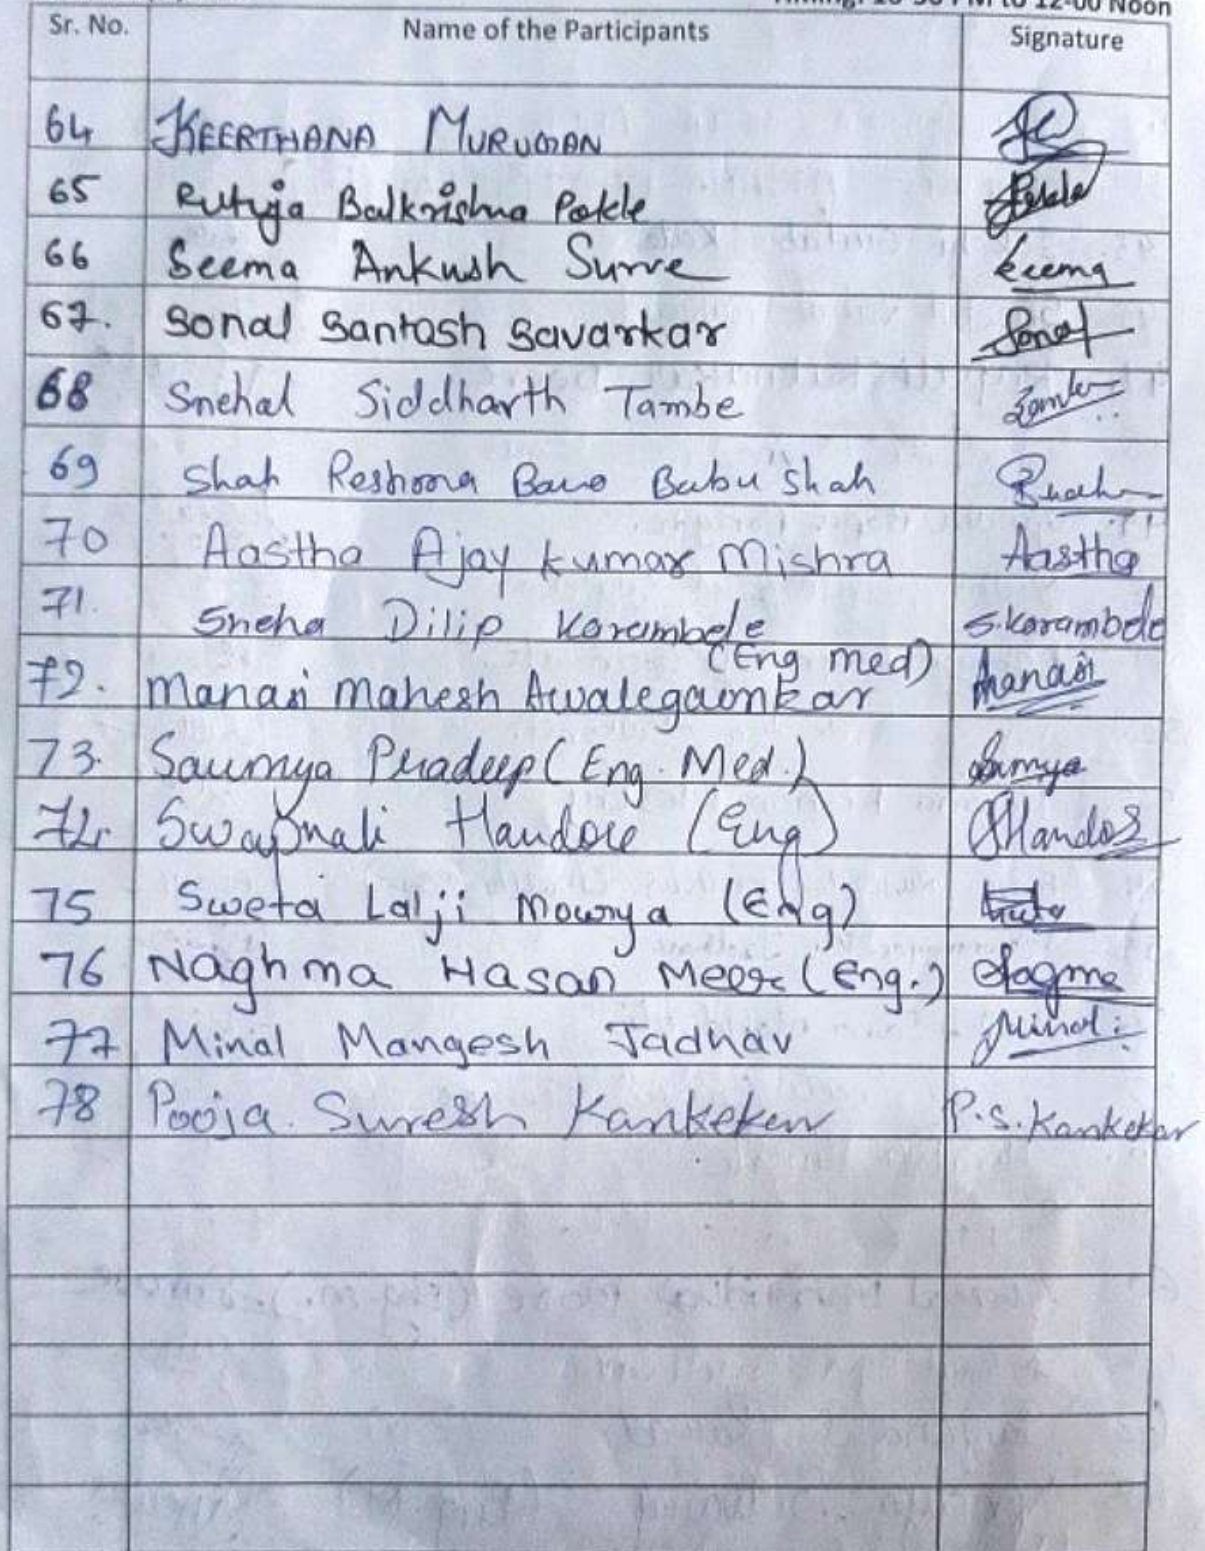 to 12-00 Noon
Sr. No. Name of the Participants Signature
64 KEERTHANA MURUGAN
65 Rutuja Balkrishna Pakle
66 Seema Ankush Surve Seema
67. Sonal Santosh Savarkar Sonal
68 Snehal Siddharth Tambe
69 Shah Reshma Bano Babu Shah
70 Aastha Ajay kumar Mishra Aastha
71. Sneha Dilip Karambele S.Karambele
(Eng med)
72. Manasi Mahesh Awalegaonkar Manasi
73. Saumya Pradeep (Eng. Med.) Saumya
74. Swapnali Handore (Eng)
75 Sweta Lalji Mourya (Eng)
76 Naghma Hasan Meer (Eng.) Nagma
77 Minal Mangesh Jadhav Minal
78 Pooja Suresh Kankekar P.S. Kankekar